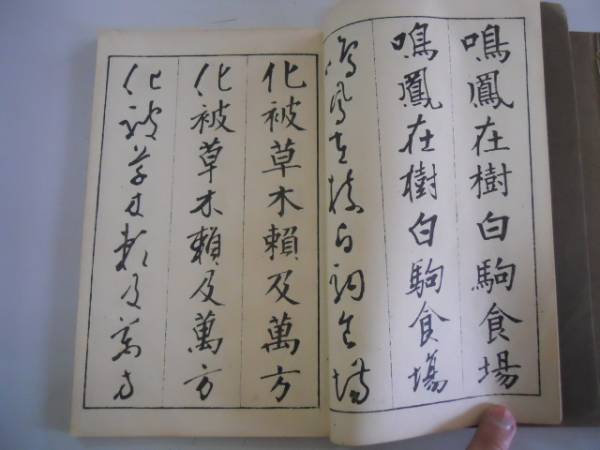 鳴鳳在樹白駒食場
鳴鳳在樹白駒食場
鳴鳳在樹白駒食場
化被草木賴及萬方
化被草木賴及萬方
化被草木賴及萬方